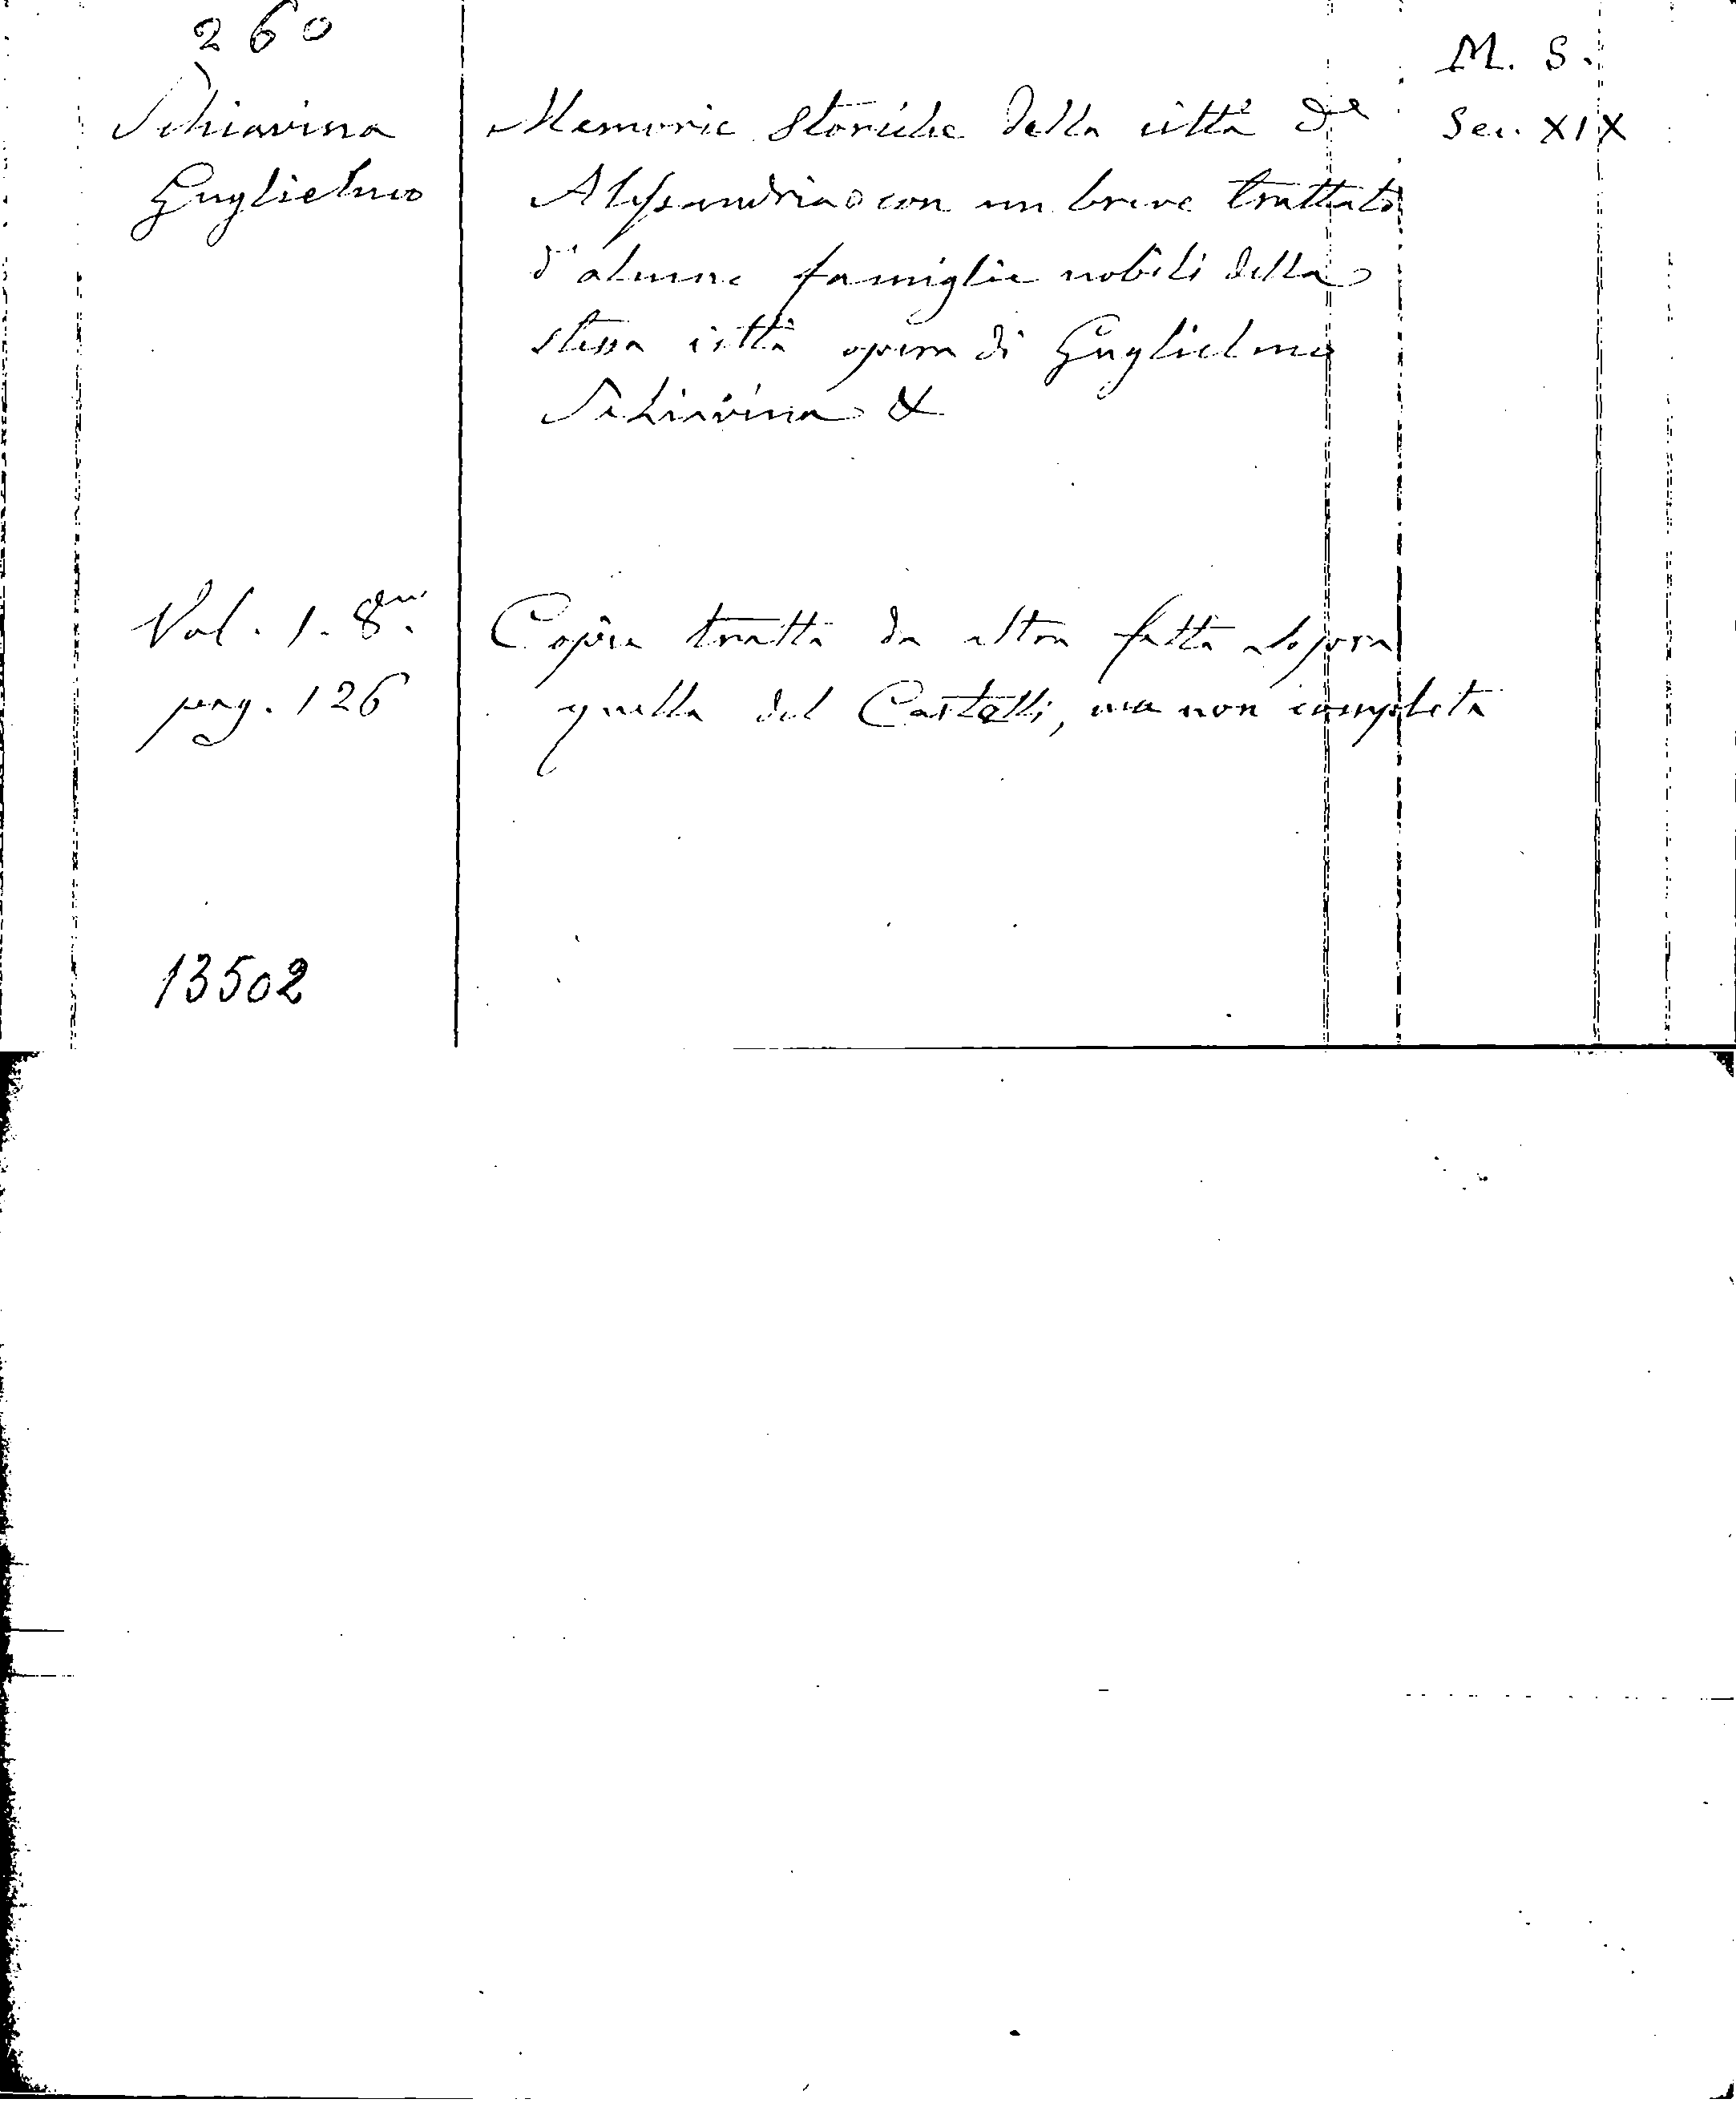 260
M. S.
Schiavina
Memorie Storiche della città di
Sec. XIX
Guglielmo
Alessandria con un breve trattato
d'alcune famiglie nobili della
stessa città opera di Guglielmo
Schiavina &
Vol. 1. 8.
Copia tratta da altra fatta sopra
pag. 126
quella del Castelli, ma non completa
13502